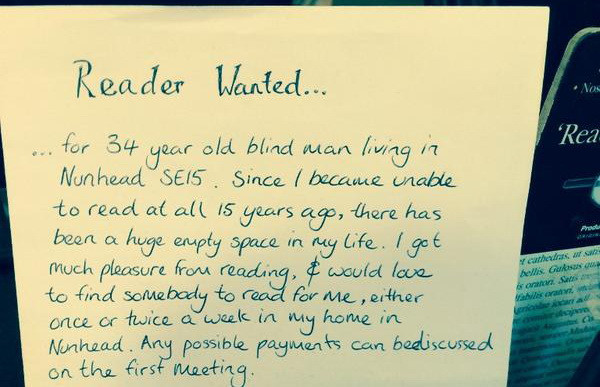 Reader Wanted...
... for 34 year old blind man living in
Nunhead SE15. Since I became unable
to read at all 15 years ago, there has
been a huge empty space in my life. I got
much pleasure from reading, & would love
to find somebody to read for me, either
once or twice a week in my home in
Nunhead. Any possible payments can be discussed
on the first meeting.
• Nos
'Rea
Produ
et cathedras, ut satis
bellis. Gulosus
oratori.